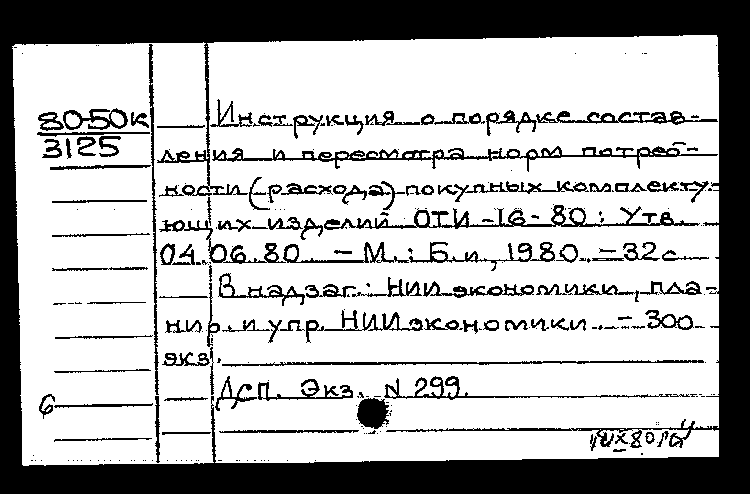 80-50к
3125
Инструкция о порядке состав-
ления и пересмотра норм потреб-
ности (расхода) покупных комплекту-
ющих изделий ОТИ-16-80: Утв.
04.06.80. - М.: Б.и, 1980. - 32с
В надзаг.: НИИ экономики, пла-
нир. и упр. НИИэкономики. - 300
экз.
Дсп. Экз. N 299.
6